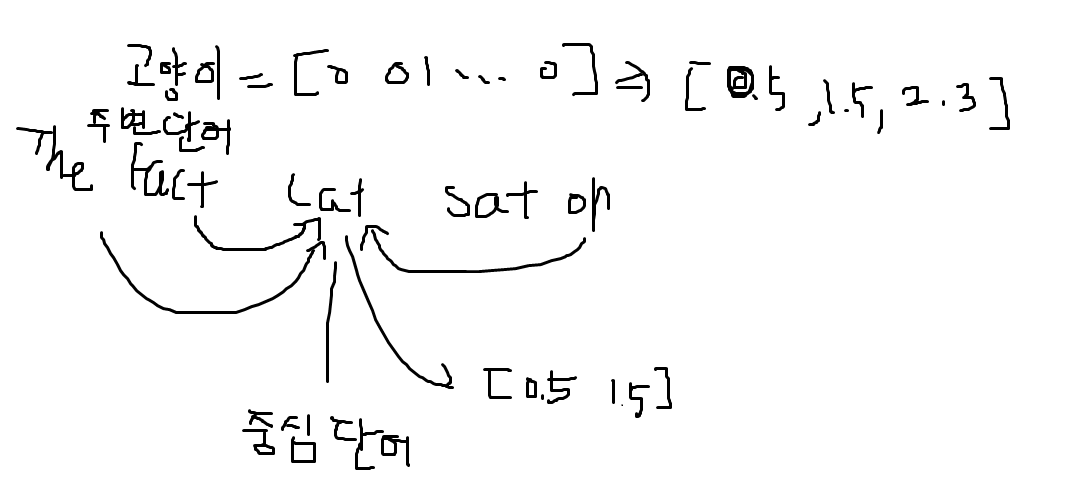 고양이 = [0 0 1 ... 0] ⇒ [0.5, 1.5, 2.3]
주변단어
The fact cat sat on
[0.5 1.5]
중심단어